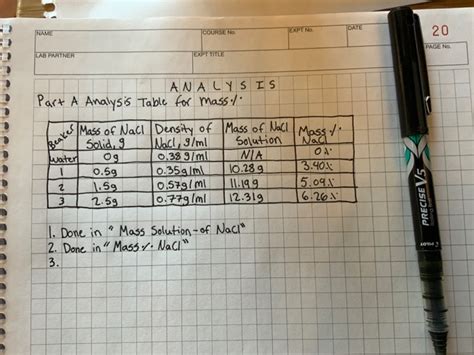 NAME
COURSE No.
EXPT No.
DATE
20
PAGE No.
LAB PARTNER
EXPT TITLE
ANALYSIS
Part A Analysis Table for Mass·/.
Beaker
Mass of NaCl Solid, g
Density of NaCl, g/ml
Mass of NaCl Solution
Mass·/. NaCl
Water 0g 0.389/ml N/A 0·/.
1 0.5g 0.35g/ml 10.28g 3.40·/.
2 1.5g 0.57g/ml 11.19g 5.09·/.
3 2.5g 0.77g/ml 12.31g 6.26·/.
1. Done in "Mass Solution-of NaCl"
2. Done in "Mass·/. NaCl"
3.
PILOT PRECISE V5